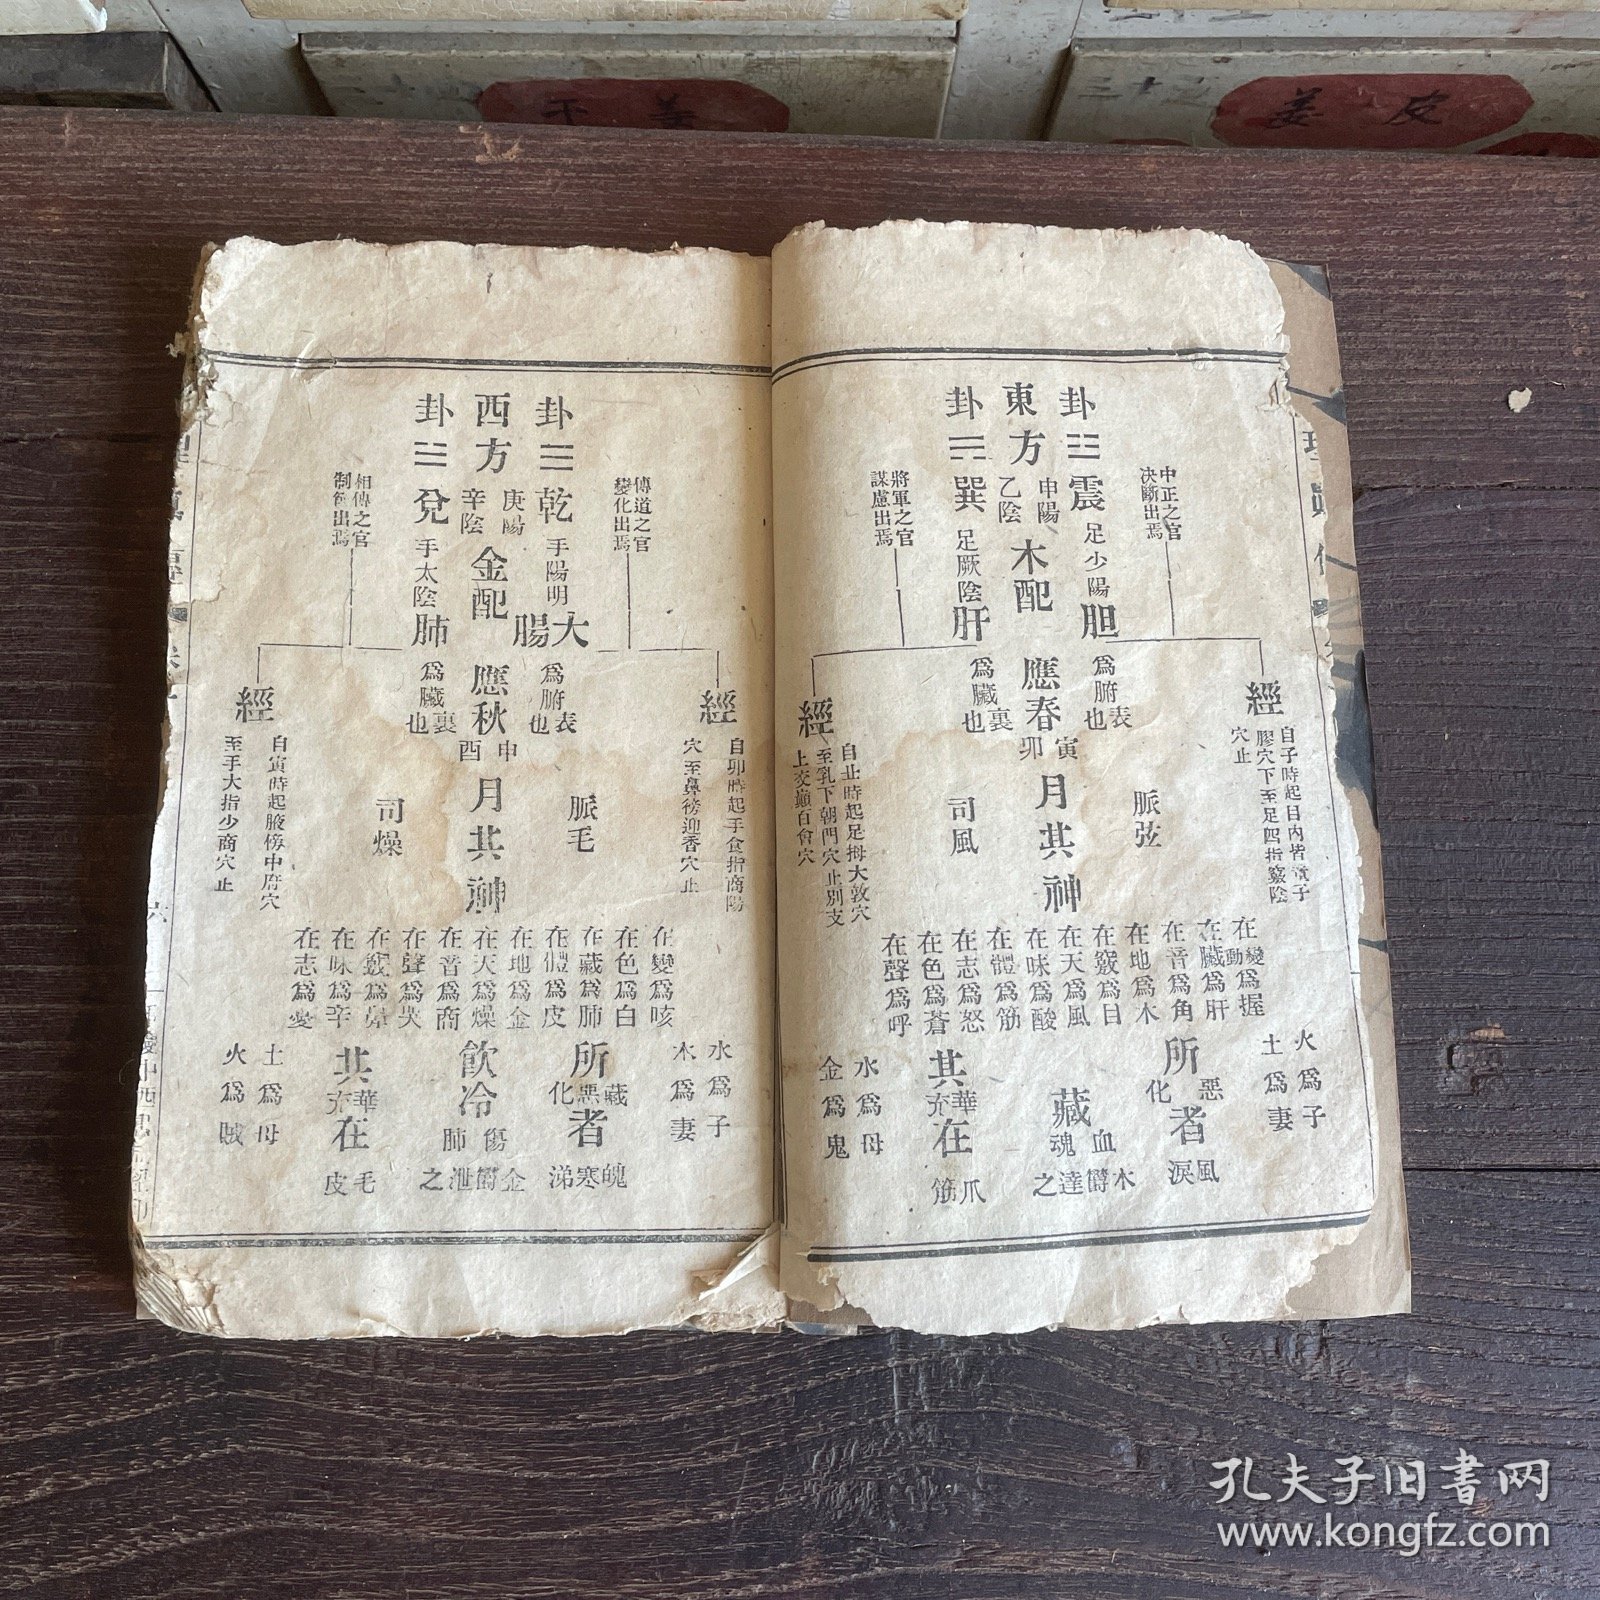 姜皮
卦☳震
足少陽
胆
為腑
表也
中正之官
決斷出焉
經
自子時起目內眥瞳子
膠穴下至足四指竅陰
穴止
脈弦
東方
申陽
乙陰
木配
應春
寅卯
月其神
卦☴巽
足厥陰
肝
為臟
裏也
將軍之官
謀慮出焉
經
自丑時起足拇大敦穴
至乳下朝門穴止別支
上交巔百會穴
司風
在變動為握
在臟為肝
在音為角
在地為木
在竅為目
在天為風
在味為酸
在體為筋
在志為怒
在色為蒼
在聲為呼
火為子
土為妻
所惡化者風淚
藏血魂
木欝達之
其華充在爪筋
水為母
金為鬼
卦☰乾
手陽明
大腸
為腑
表也
傳道之官
變化出焉
經
自卯時起手食指商陽
穴至鼻傍迎香穴止
脈毛
西方
庚陽
辛陰
金配
應秋
申酉
月其神
卦☱兌
手太陰
肺
為臟
裏也
相傳之官
制節出焉
經
自寅時起腋傍中府穴
至手大指少商穴止
司燥
在變為咳
在色為白
在藏為肺
在體為皮
在地為金
在天為燥
在音為商
在聲為哭
在竅為鼻
在味為辛
在志為憂
水為子
木為妻
所藏惡化者魄寒涕
飲冷傷肺
金欝泄之
其華充在毛皮
土為母
火為賊
六
孔夫子旧書网
www.kongfz.com